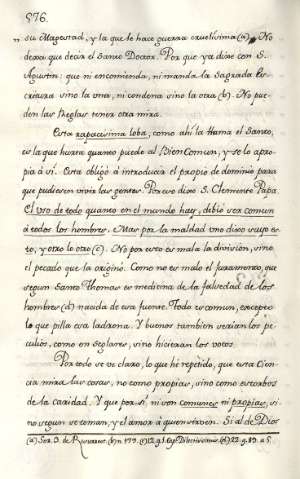 576.
" su Magestad, y la que le hace guerra cruelísima (a). No
dexa que decir el Santo Doctor. Por que ya dixe con S.
Agustin: que ni encomienda, ni manda la Sagrada Es-
critura sino la una, ni condena sino la otra (b). No pue-
den las Reglas tener otra mira.
Esta rapacissima loba, como ahi la llama el Santo,
es la que hurta quanto puede al Bien Comun, y se lo apro-
pia à sí. Esta obligó à introducir el propio de dominio para
que pudiessen vivir las gentes. Por eso dixo S. Clemente Papa.
El uso de todo quanto en el mundo hay, debió ser comun
à todos los hombres. Mas por la maldad uno dixo suyo es-
to, y otro lo otro (c). No por esto es mala la division, sino
el pecado que la originó. Como no es malo el juramento, que
segun Santo Thomas es medicina de la falsedad de los
hombres (d) nacida de esa fuente. Todo es comun, excepto
lo que pilla esa ladrona. Y buenos tambien serian los pe-
culios, como en seglares, sino hicieran los votos.
Por todo se ve claro, lo que he repetido, que esta Cien-
cia mira las cosas, no como propias, sino como estorbos
de la caridad. Y que por sí, ni son comunes ni propias, si-
no segun se toman, y el amor à quien sirven. Si al de Dios
(a) Ser. 5. de (b) n 179. (c) 12. q. 1. cap. Dilectissimis. (d) 22. q. 89. a 5.